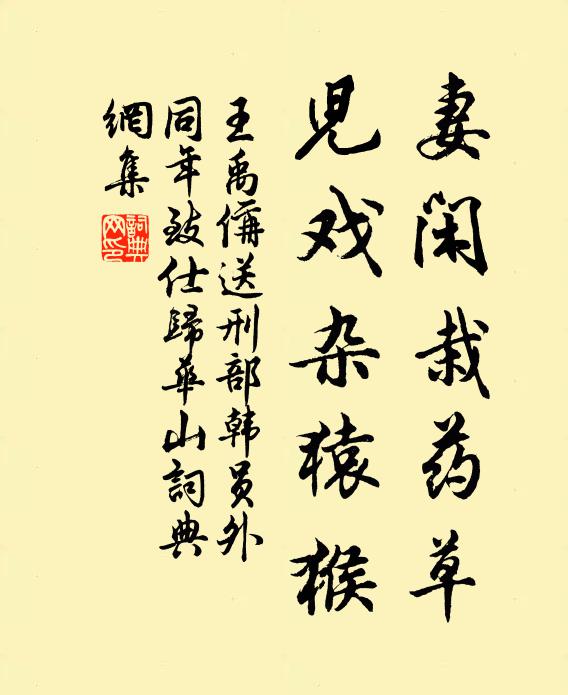 妻闲栽药草
児戏杂猿猴
王禹偁送刑部韩员外
同年致仕歸華山詞典
網集
詞典
网印